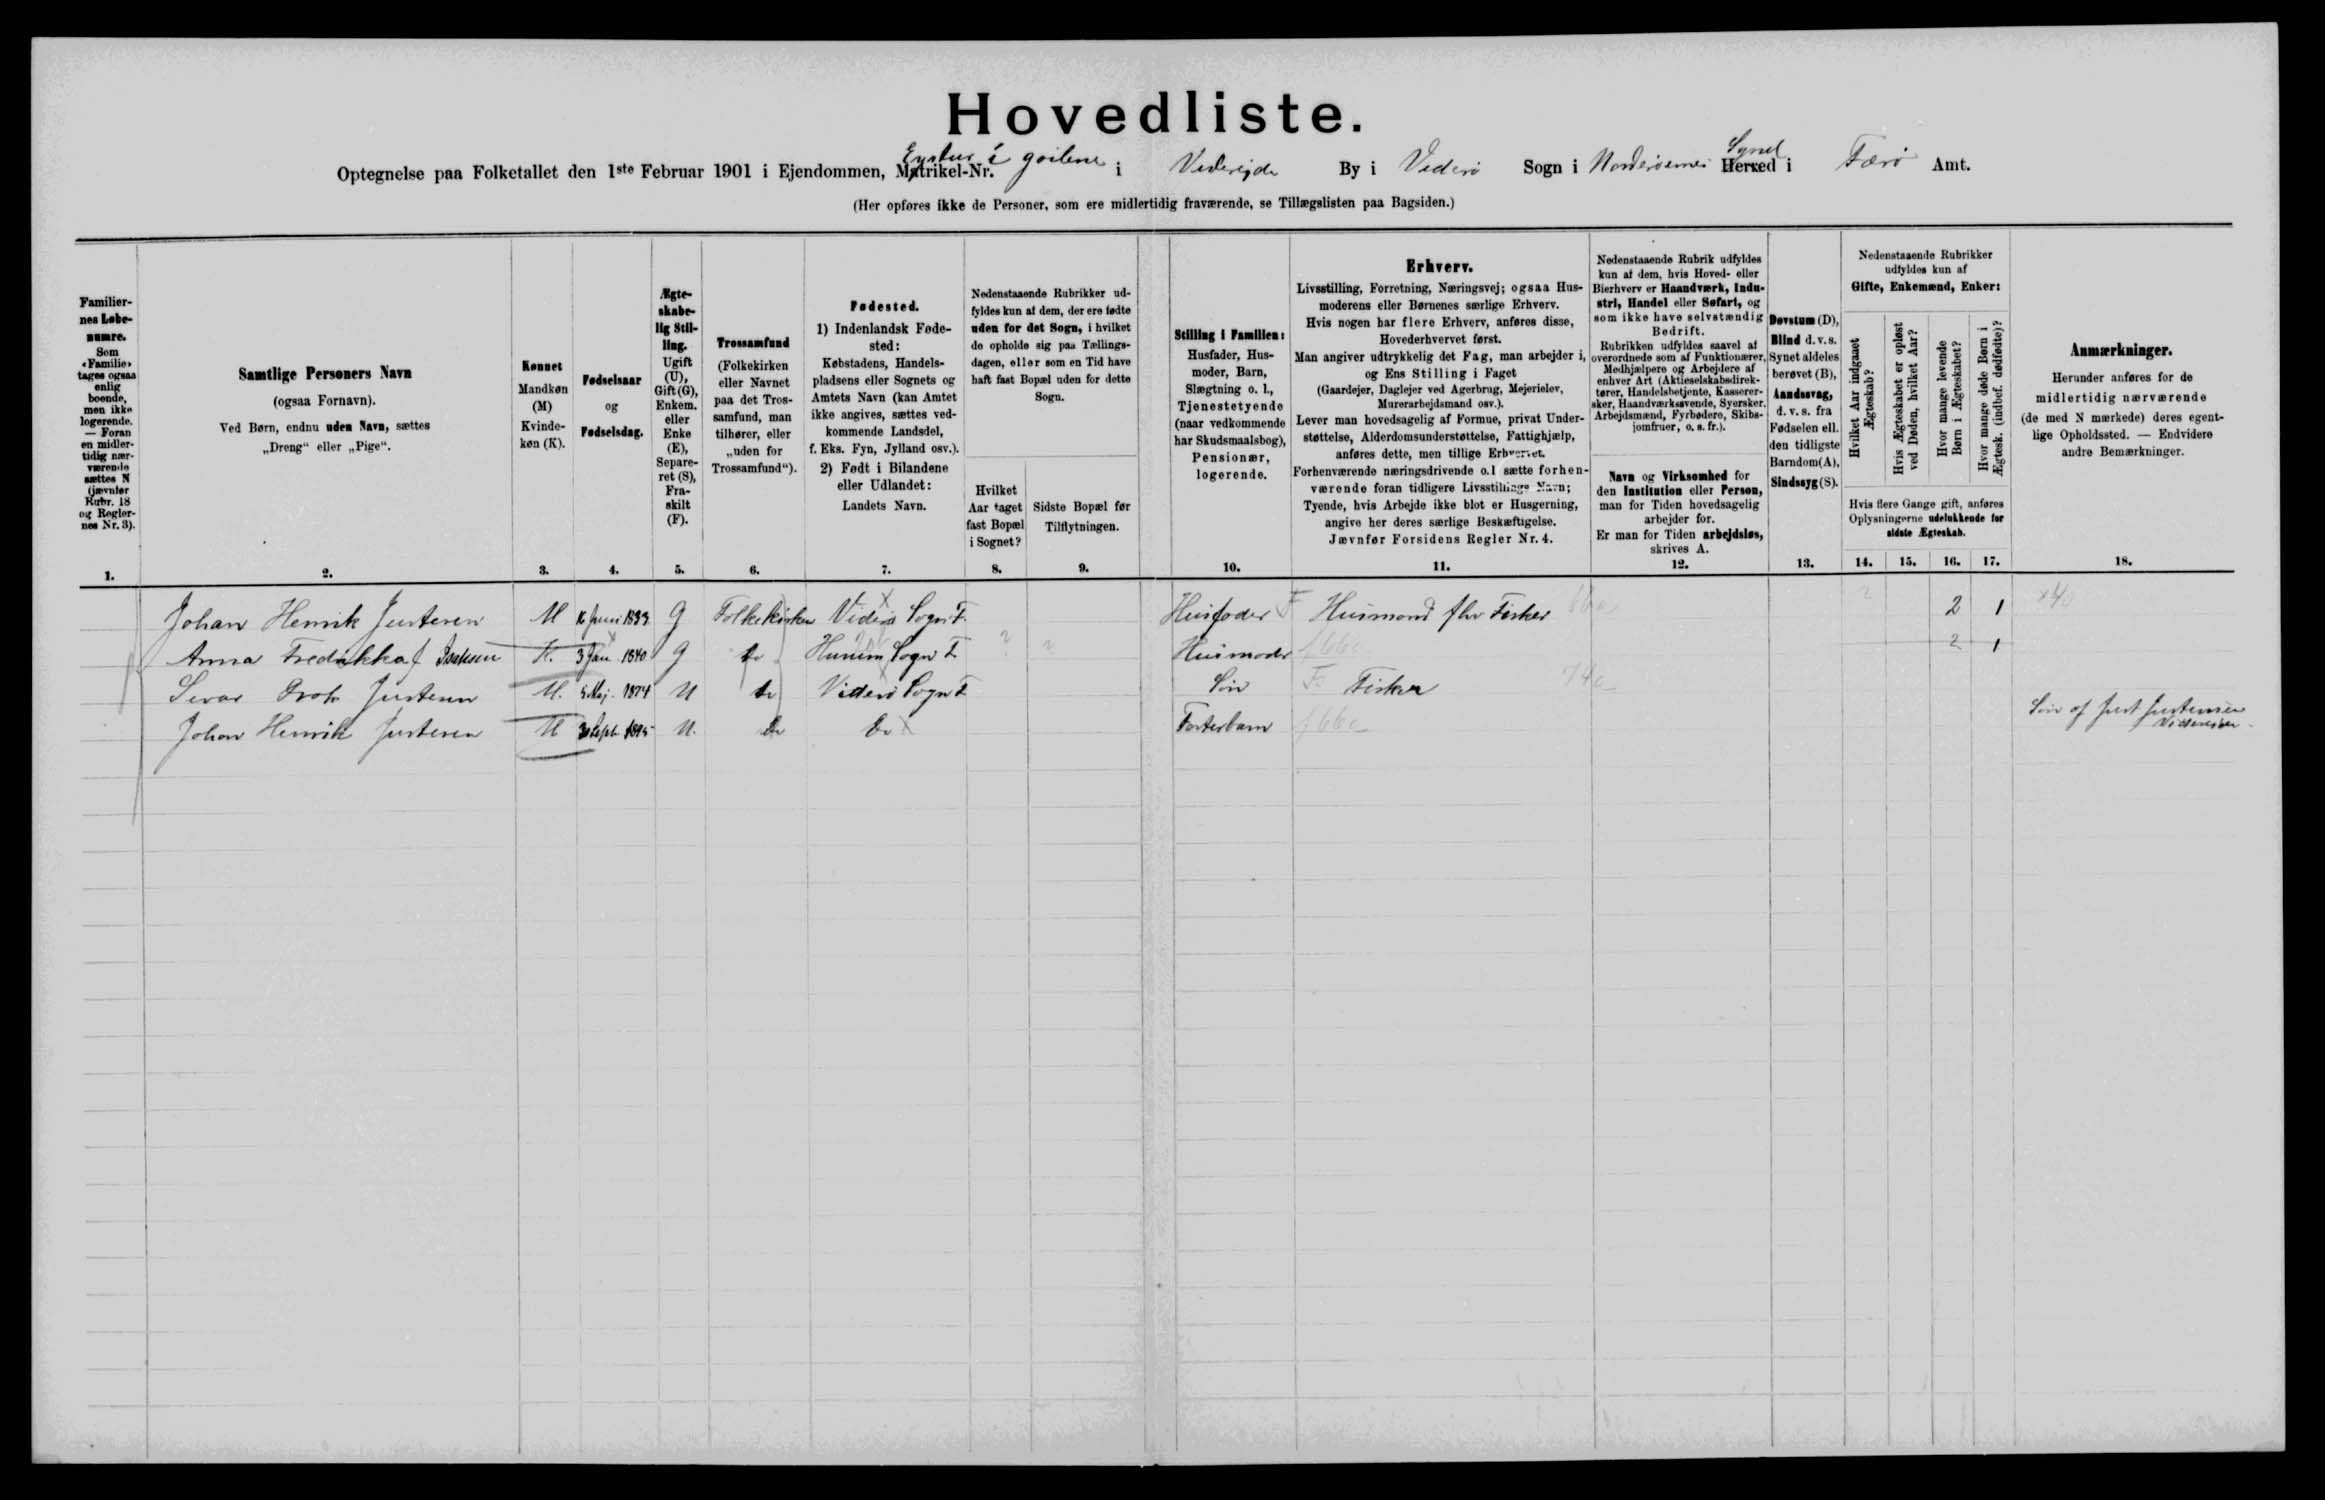 Hovedliste.
Optegnelse paa Folketallet den 1ste Februar 1901 i Ejendommen, Matrikel-Nr. Eystur í goilene i Viderejde By i Viderø Sogn i Norderøernes Herred Syssel i Færø Amt.
(Her opføres ikke de Personer, som ere midlertidig fraværende, se Tillægslisten paa Bagsiden.)
Familiernes Løbenumre.
Som «Familie» tages ogsaa enlig boende, men ikke logerende. — Foran en midlertidig nærværende sættes N (jævnfør Rubr. 18 og Reglernes Nr. 3).
1.
Samtlige Personers Navn
(ogsaa Fornavn).
Ved Børn, endnu uden Navn, sættes
„Dreng“ eller „Pige“.
2.
Kønnet
Mandkøn (M)
Kvindekøn (K).
3.
Fødselsaar
og
Fødselsdag.
4.
Ægteskabelig Stilling.
Ugift (U), Gift (G), Enkem. eller Enke (E), Separeret (S), Fraskilt (F).
5.
Trossamfund
(Folkekirken eller Navnet paa det Trossamfund, man tilhører, eller „uden for Trossamfund“).
6.
Fødested.
1) Indenlandsk Fødested:
Købstadens, Handelspladsens eller Sognets og Amtets Navn (kan Amtet ikke angives, sættes vedkommende Landsdel, f. Eks. Fyn, Jylland osv.).
2) Født i Bilandene eller Udlandet:
Landets Navn.
7.
Nedenstaaende Rubrikker udfyldes kun af dem, der ere fødte uden for det Sogn, i hvilket de opholde sig paa Tællingsdagen, eller som en Tid have haft fast Bopæl uden for dette Sogn.
Hvilket Aar taget fast Bopæl i Sognet?
8.
Sidste Bopæl før Tilflytningen.
9.
Stilling i Familien:
Husfader, Husmoder, Barn, Slægtning o. l., Tjenestetyende (naar vedkommende har Skudsmaalsbog), Pensionær, logerende.
10.
Erhverv.
Livsstilling, Forretning, Næringsvej; ogsaa Husmoderens eller Børnenes særlige Erhverv.
Hvis nogen har flere Erhverv, anføres disse, Hovederhvervet først.
Man angiver udtrykkelig det Fag, man arbejder i, og Ens Stilling i Faget
(Gaardejer, Daglejer ved Agerbrug, Mejerielev, Murerarbejdsmand osv.).
Lever man hovedsagelig af Formue, privat Understøttelse, Alderdomsunderstøttelse, Fattighjælp, anføres dette, men tillige Erhvervet.
Forhenværende næringsdrivende o. l sætte forhenværende foran tidligere Livsstillings Navn;
Tyende, hvis Arbejde ikke blot er Husgerning, angive her deres særlige Beskæftigelse.
Jævnfør Forsidens Regler Nr. 4.
11.
Nedenstaaende Rubrik udfyldes kun af dem, hvis Hoved- eller Bierhverv er Haandværk, Industri, Handel eller Søfart, og som ikke have selvstændig Bedrift.
Rubrikken udfyldes saavel af overordnede som af Funktionærer, Medhjælpere og Arbejdere af enhver Art (Aktieselskabsdirektører, Handelsbetjente, Kasserersker, Haandværkssvende, Syersker, Arbejdsmænd, Fyrbødere, Skibsjomfruer, o. s. fr.).
Navn og Virksomhed for den Institution eller Person, man for Tiden hovedsagelig arbejder for.
Er man for Tiden arbejdsløs, skrives A.
12.
Døvstum (D), Blind d. v. s. Synet aldeles berøvet (B), Aandssvag, d. v. s. fra Fødselen ell. den tidligste Barndom (A), Sindssyg (S).
13.
Nedenstaaende Rubrikker udfyldes kun af
Gifte, Enkemænd, Enker:
Hvilket Aar indgaaet Ægteskab?
Hvis Ægteskabet er opløst ved Døden, hvilket Aar?
Hvor mange levende Børn i Ægteskabet?
Hvor mange døde Børn i Ægtesk. (indbef. dødfødte)?
Hvis flere Gange gift, anføres Oplysningerne udelukkende for sidste Ægteskab.
14. 15. 16. 17.
Anmærkninger.
Herunder anføres for de midlertidig nærværende (de med N mærkede) deres egentlige Opholdssted. — Endvidere andre Bemærkninger.
18.
Johan Henrik Justesen M Juni G Folkekirken Viderø Sogn F. Husfader F Husmand Fisker 2 1
Anna Isaksen K. 3 Jan 1840 G do Sogn F. ? Husmoder 2 1
Justesen M. Maj 1874 U do Viderø Sogn F Søn F Fisker
Johan Henrik Justesen M Septb 1895 U. do do Fosterbarn Søn af Just Justesen
Viderejde